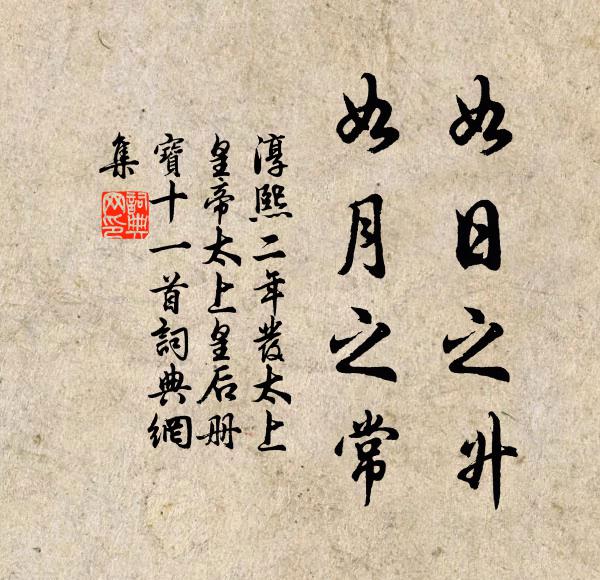 如日之升
如月之常
淳熙二年發太上
皇帝太上皇后册
寶十一首詞典網
集
詞典網印